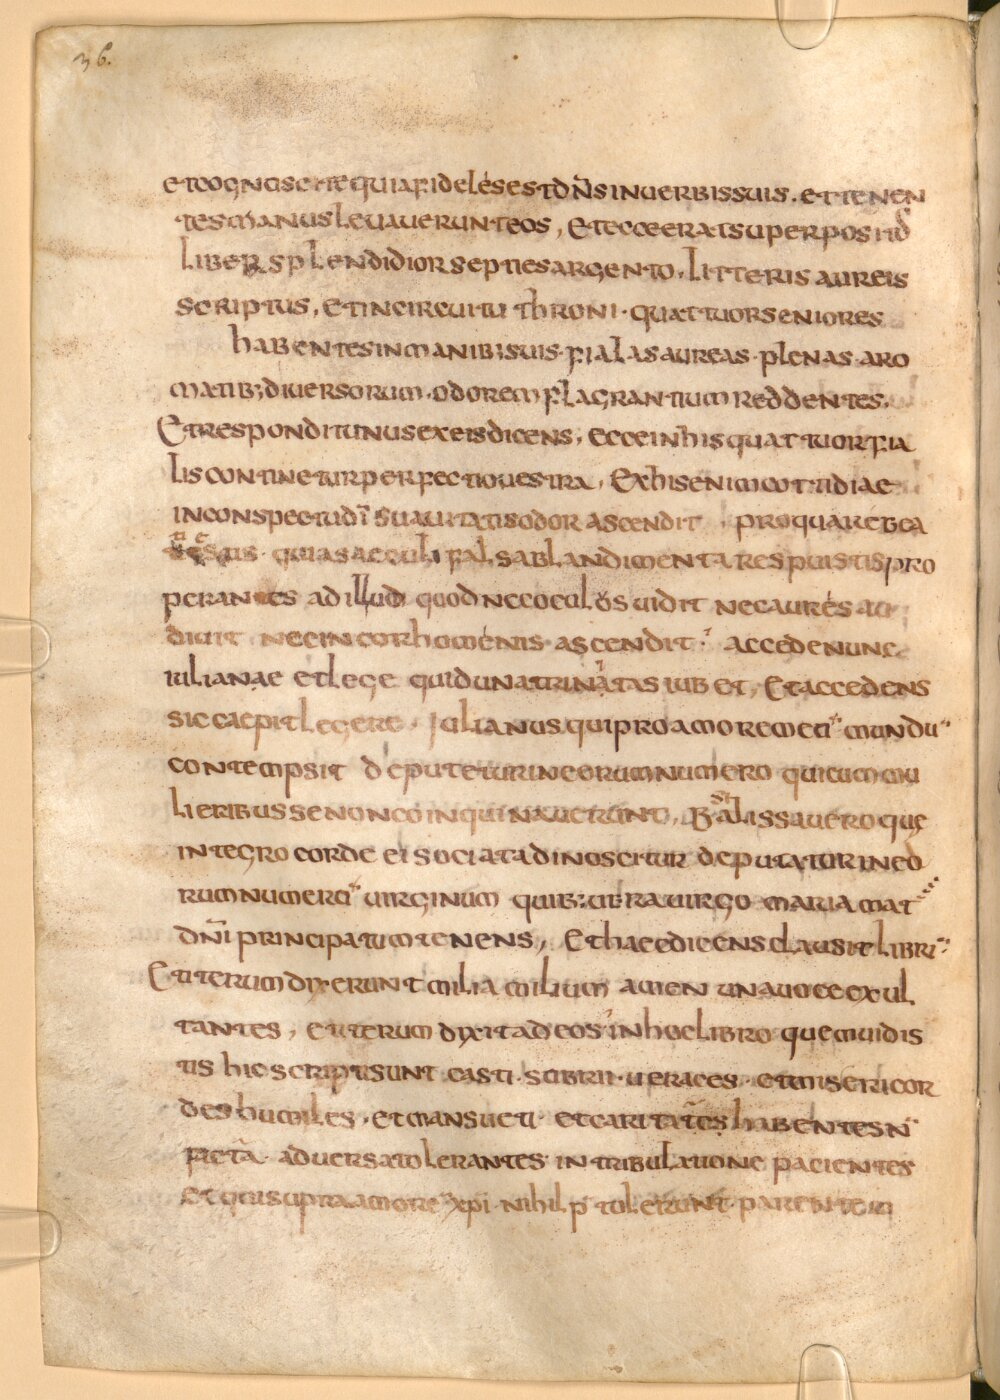 36.
et cognoscite quia fidelis est dñs in uerbis suis. et tenen
tes manus leuauerunt eos, Et ecce erat superpositus
liber splendidior septies argento, litteris aureis
scriptus, et in circuitu throni · quattuor seniores
habentes in manib; suis · fialas aureas · plenas aro
matib; diuersorum · odorem flagrantium reddentes.
Et respondit unus ex eis dicens, ecce in his quattuor fia
lis continetur perfectio uestra, Ex his enim cottidiae
in conspectu di suauitatis odor ascendit , pro qua re bea
estis · quia saeculi falsa blandimenta respuistis pro
perantes ad illud quod nec oculos uidit nec aures au
diuit nec in cor homenis · ascendit · accede nunc
iulianae et lege quid una trinitas iubet, Et accedens
sic caepit legere · Iulianus qui pro amore meu mundu
contempsit deputetur in eorum numero qui cum mu
lieribus se non coinquinauerunt, Basilissa uero que
integro corde ei sociata dinoscitur deputatur in eo
rum numeru uirginum quib; uera uirgo maria mat
dñi principatum tenens, Et haec dicens clausit libru
Et iterum dixerunt milia milium amen una uoce exul
tantes, et iterum dixit ad eos in hoc libro quem uidis
tis hic scripti sunt casti · sobrii · ueraces · et misericor
des humiles, et mansueti · et caritates habentes n
fictā aduersa tolerantes in tribulatione pacientes
et qui supra amore xpi nihil p tulerunt · parentem